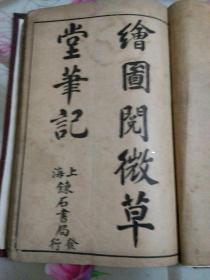 繪圖閱微草
堂筆記
上海鍊石書局發行